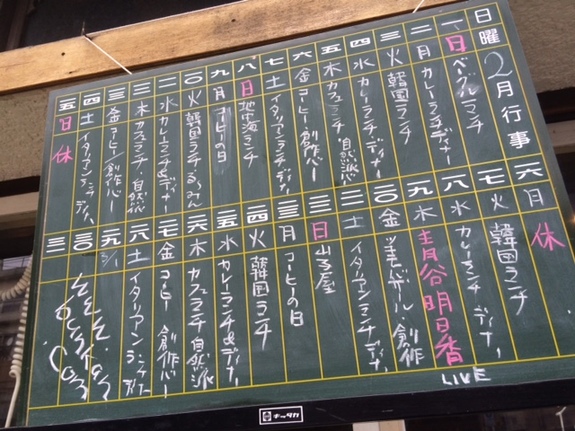 日曜 2月行事
一 日 ベーグルランチ
二 月 カレーランチ ディナー
三 火 韓国ランチ
四 水 カレーランチ・ディナー
五 木 カフェランチ 自然派
六 金 コーヒー・創作バー
七 土 イタリアンランチ・ディナー
八 日 地中海ランチ
九 月 コーヒーの日
一〇 火 韓国ランチ
一一 水 カレーランチ&ディナー
一二 木 カフェランチ・自然派
一三 金 コーヒー/創作バー
一四 土 イタリアンランチ ディナ
一五 日 休
一六 月 休
一七 火 韓国ランチ
一八 水 カレーランチ ディナー
一九 木 青谷明日香 LIVE
二〇 金 バザール 創作
二一 土 イタリアンランチディナ
二二 日 山ろ屋
二三 月 コーヒーの日
二四 火 韓国ランチ
二五 水 カレーランチ&ディナ
二六 木 カフェランチ 自然派
二七 金 コーヒー 創作バー
二八 土 イタリアンランチ
二九 3/1
三〇
三一
キッタカ